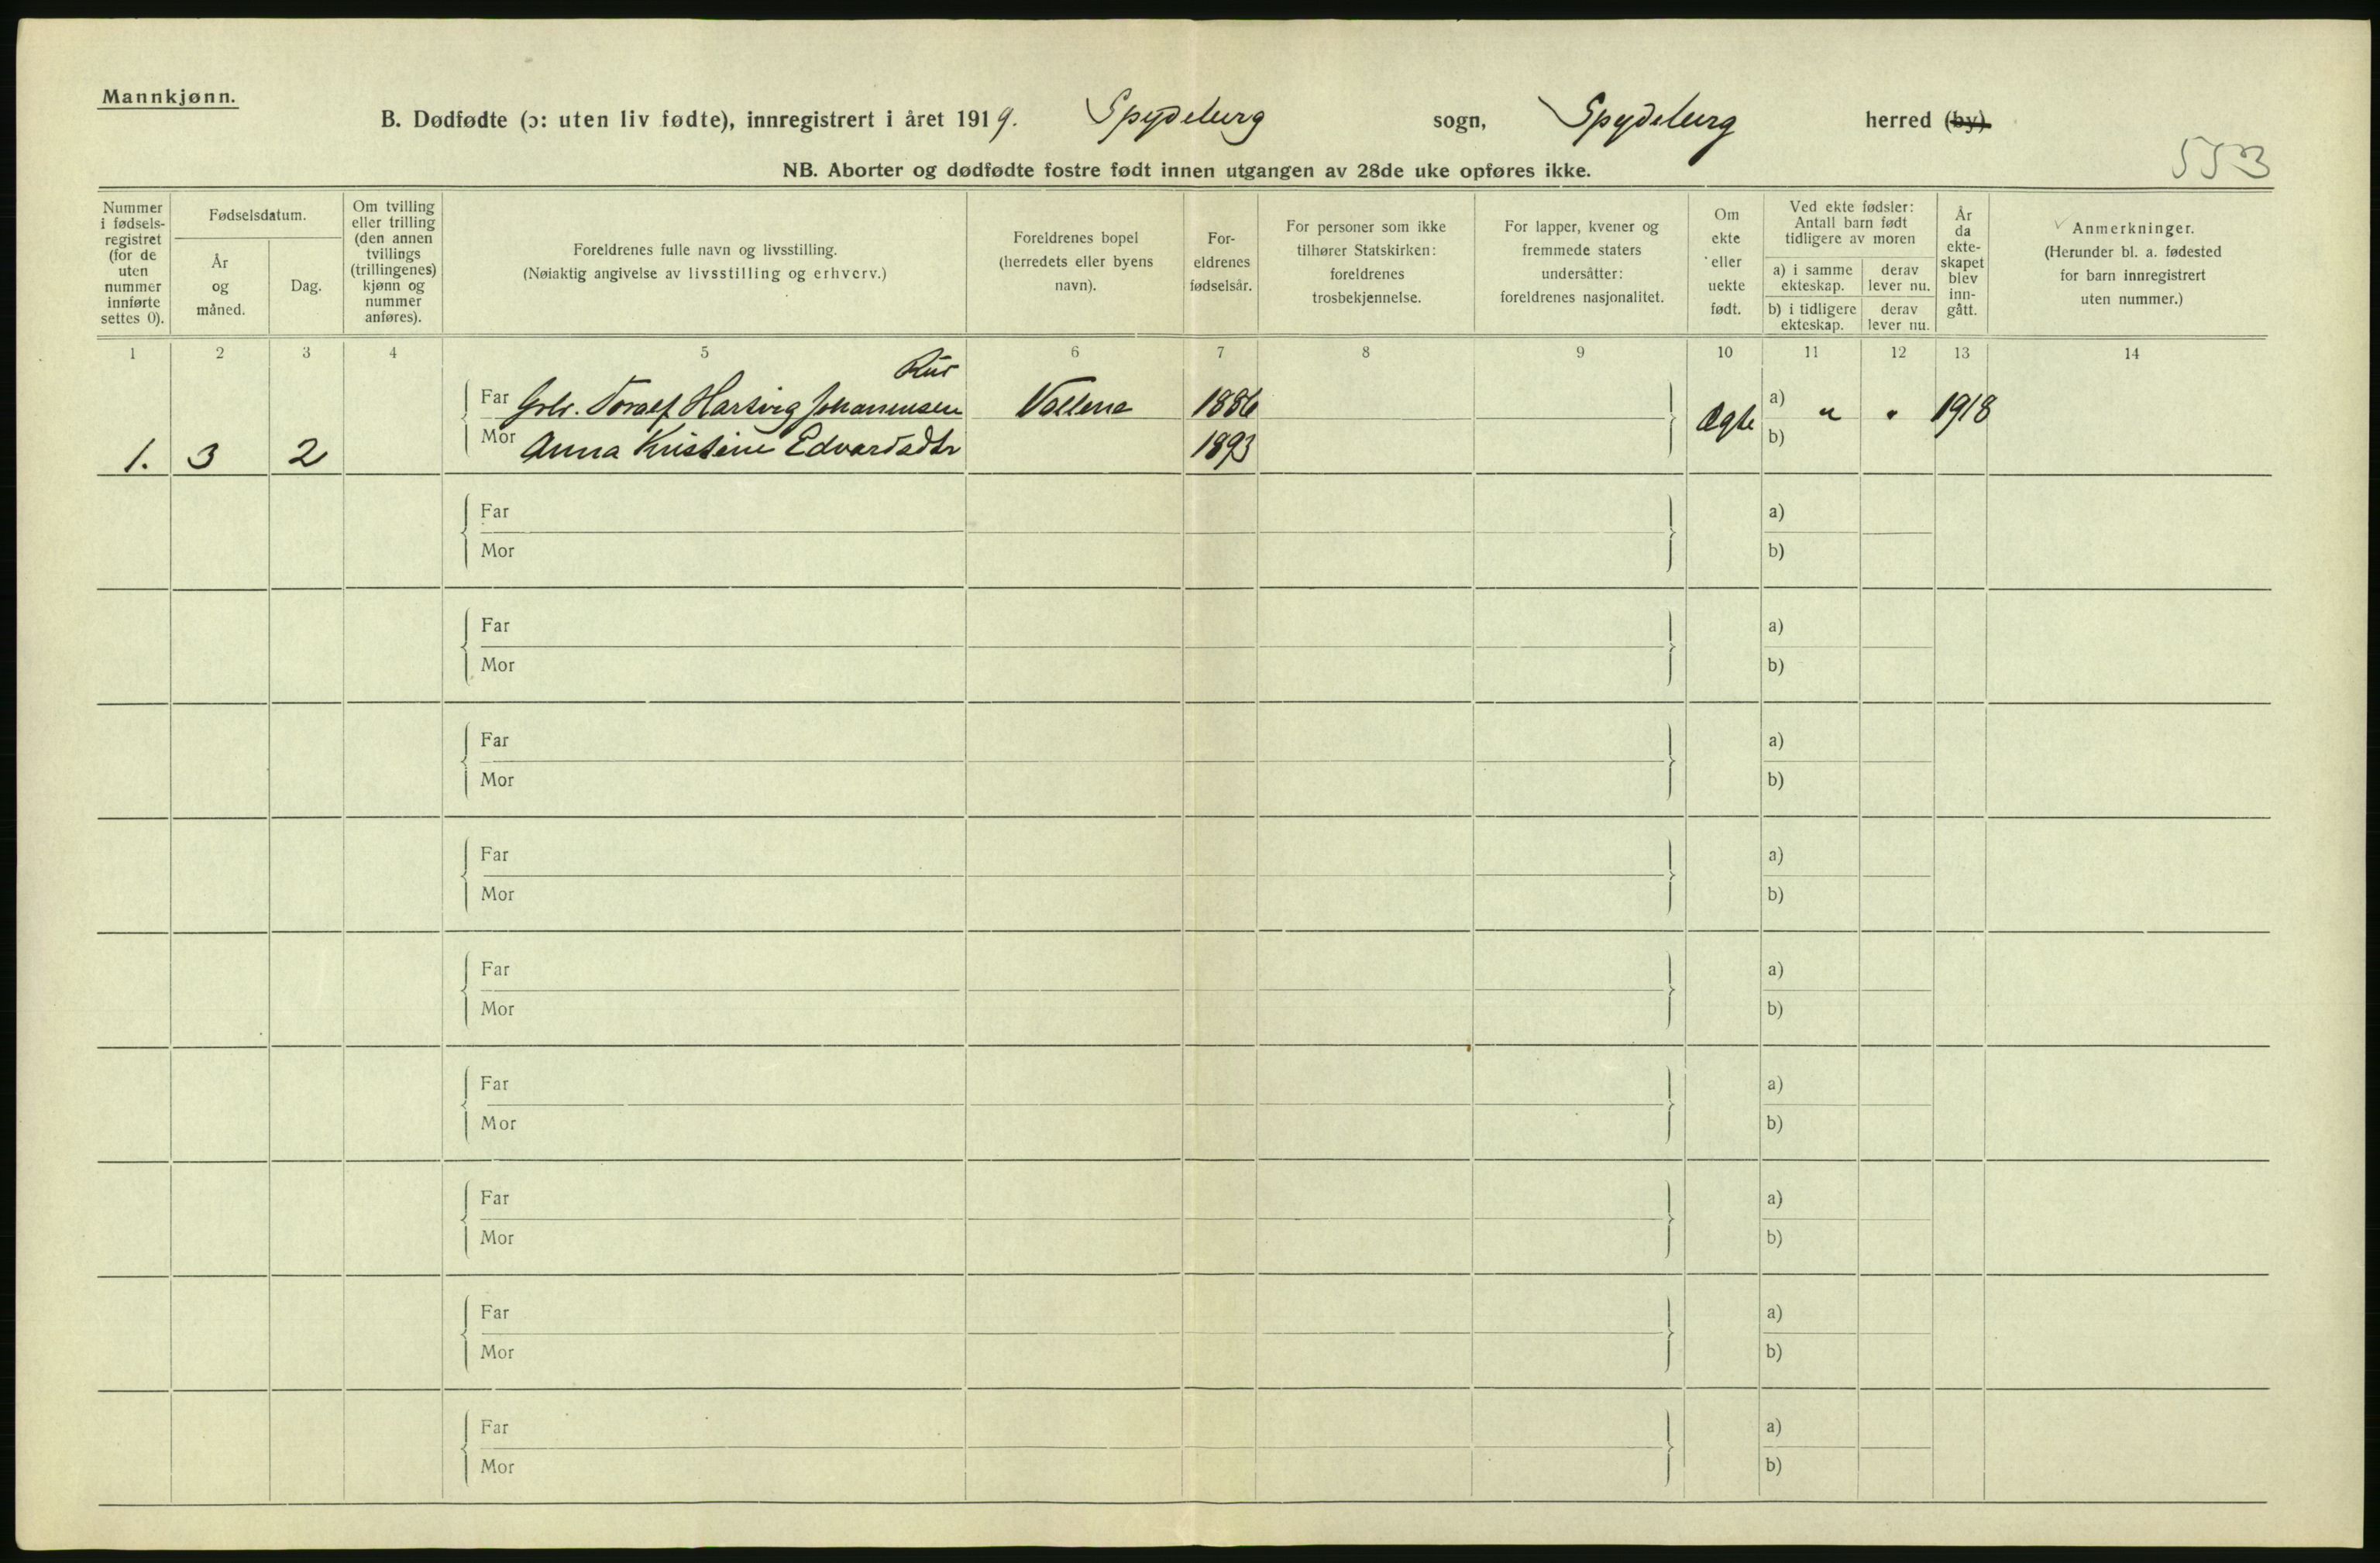 Mannkjønn.
B. Dødfødte (ɔ: uten liv fødte), innregistrert i året 1919. Spydeberg sogn, Spydeberg herred (by)
553
NB. Aborter og dødfødte fostre født innen utgangen av 28de uke opføres ikke.
Nummer i fødsels-registret (for de uten nummer innførte settes 0).
Fødselsdatum.
År og måned.
Dag.
Om tvilling eller trilling (den annen tvillings (trillingenes) kjønn og nummer anføres).
Foreldrenes fulle navn og livsstilling.
(Nøiaktig angivelse av livsstilling og erhverv.)
Foreldrenes bopel (herredets eller byens navn).
For-eldrenes fødselsår.
For personer som ikke tilhører Statskirken: foreldrenes trosbekjennelse.
For lapper, kvener og fremmede staters undersåtter: foreldrenes nasjonalitet.
Om ekte eller uekte født.
Ved ekte fødsler: Antall barn født tidligere av moren
a) i samme ekteskap.
derav lever nu.
b) i tidligere ekteskap.
derav lever nu.
År da ekte-skapet blev inn-gått.
Anmerkninger.
(Herunder bl. a. fødested for barn innregistrert uten nummer.)
1 2 3 4 5 6 7 8 9 10 11 12 13 14
Far Toralf Hartvig Johannensen 1886 a) " " 1918
1. 3 2 Mor Anna Kristine Edvardsdtr 1893 Ægte b)
Far a)
Mor b)
Far a)
Mor b)
Far a)
Mor b)
Far a)
Mor b)
Far a)
Mor b)
Far a)
Mor b)
Far a)
Mor b)
Far a)
Mor b)
Far a)
Mor b)